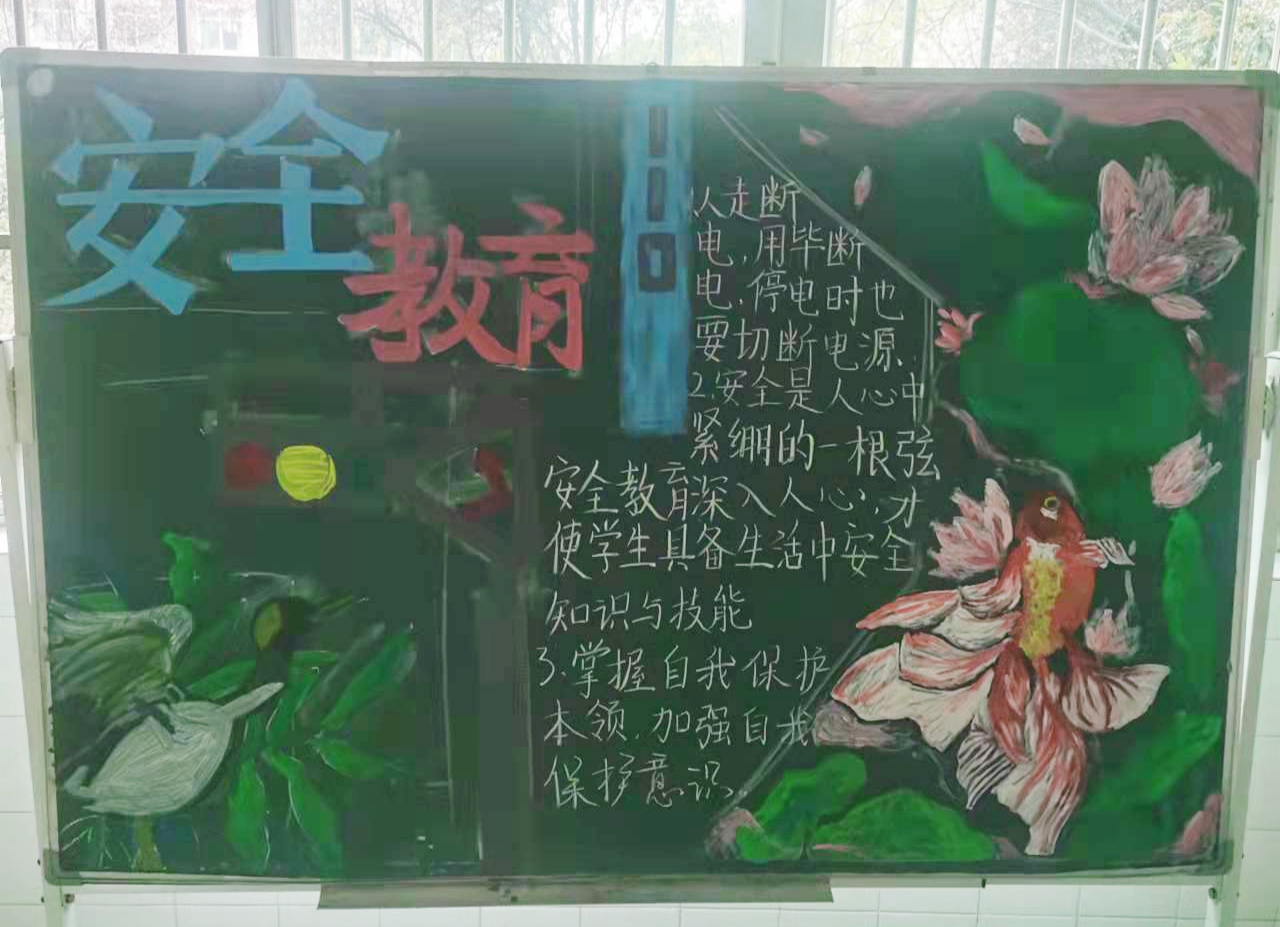 安全
教育
人走断
电,用毕断
电.停电时也
要切断电源.
2.安全是人心中
紧绷的一根弦
安全教育深入人心,才
使学生具备生活中安全
知识与技能
3.掌握自我保护
本领.加强自我
保护意识.